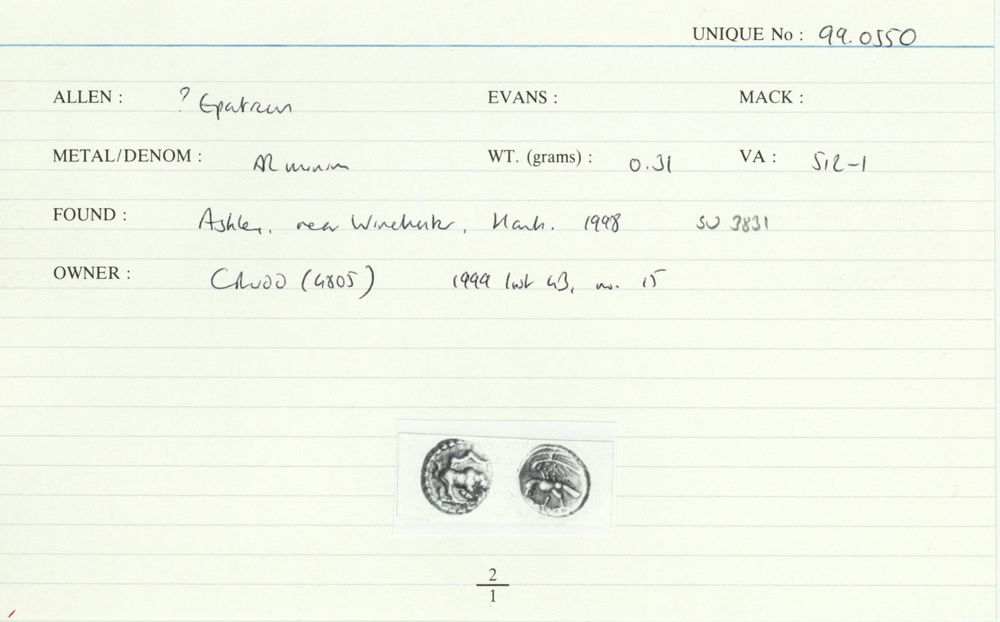 UNIQUE No : 99.0550
ALLEN : ? Epatticus EVANS : MACK :
METAL/DENOM : AR minim WT. (grams) : 0.31 VA : 512-1
FOUND : Ashley, near Winchester, Hants. 1998 SU 3831
OWNER : CRUDD (4805) 1999 list 43, no. 15
2
1